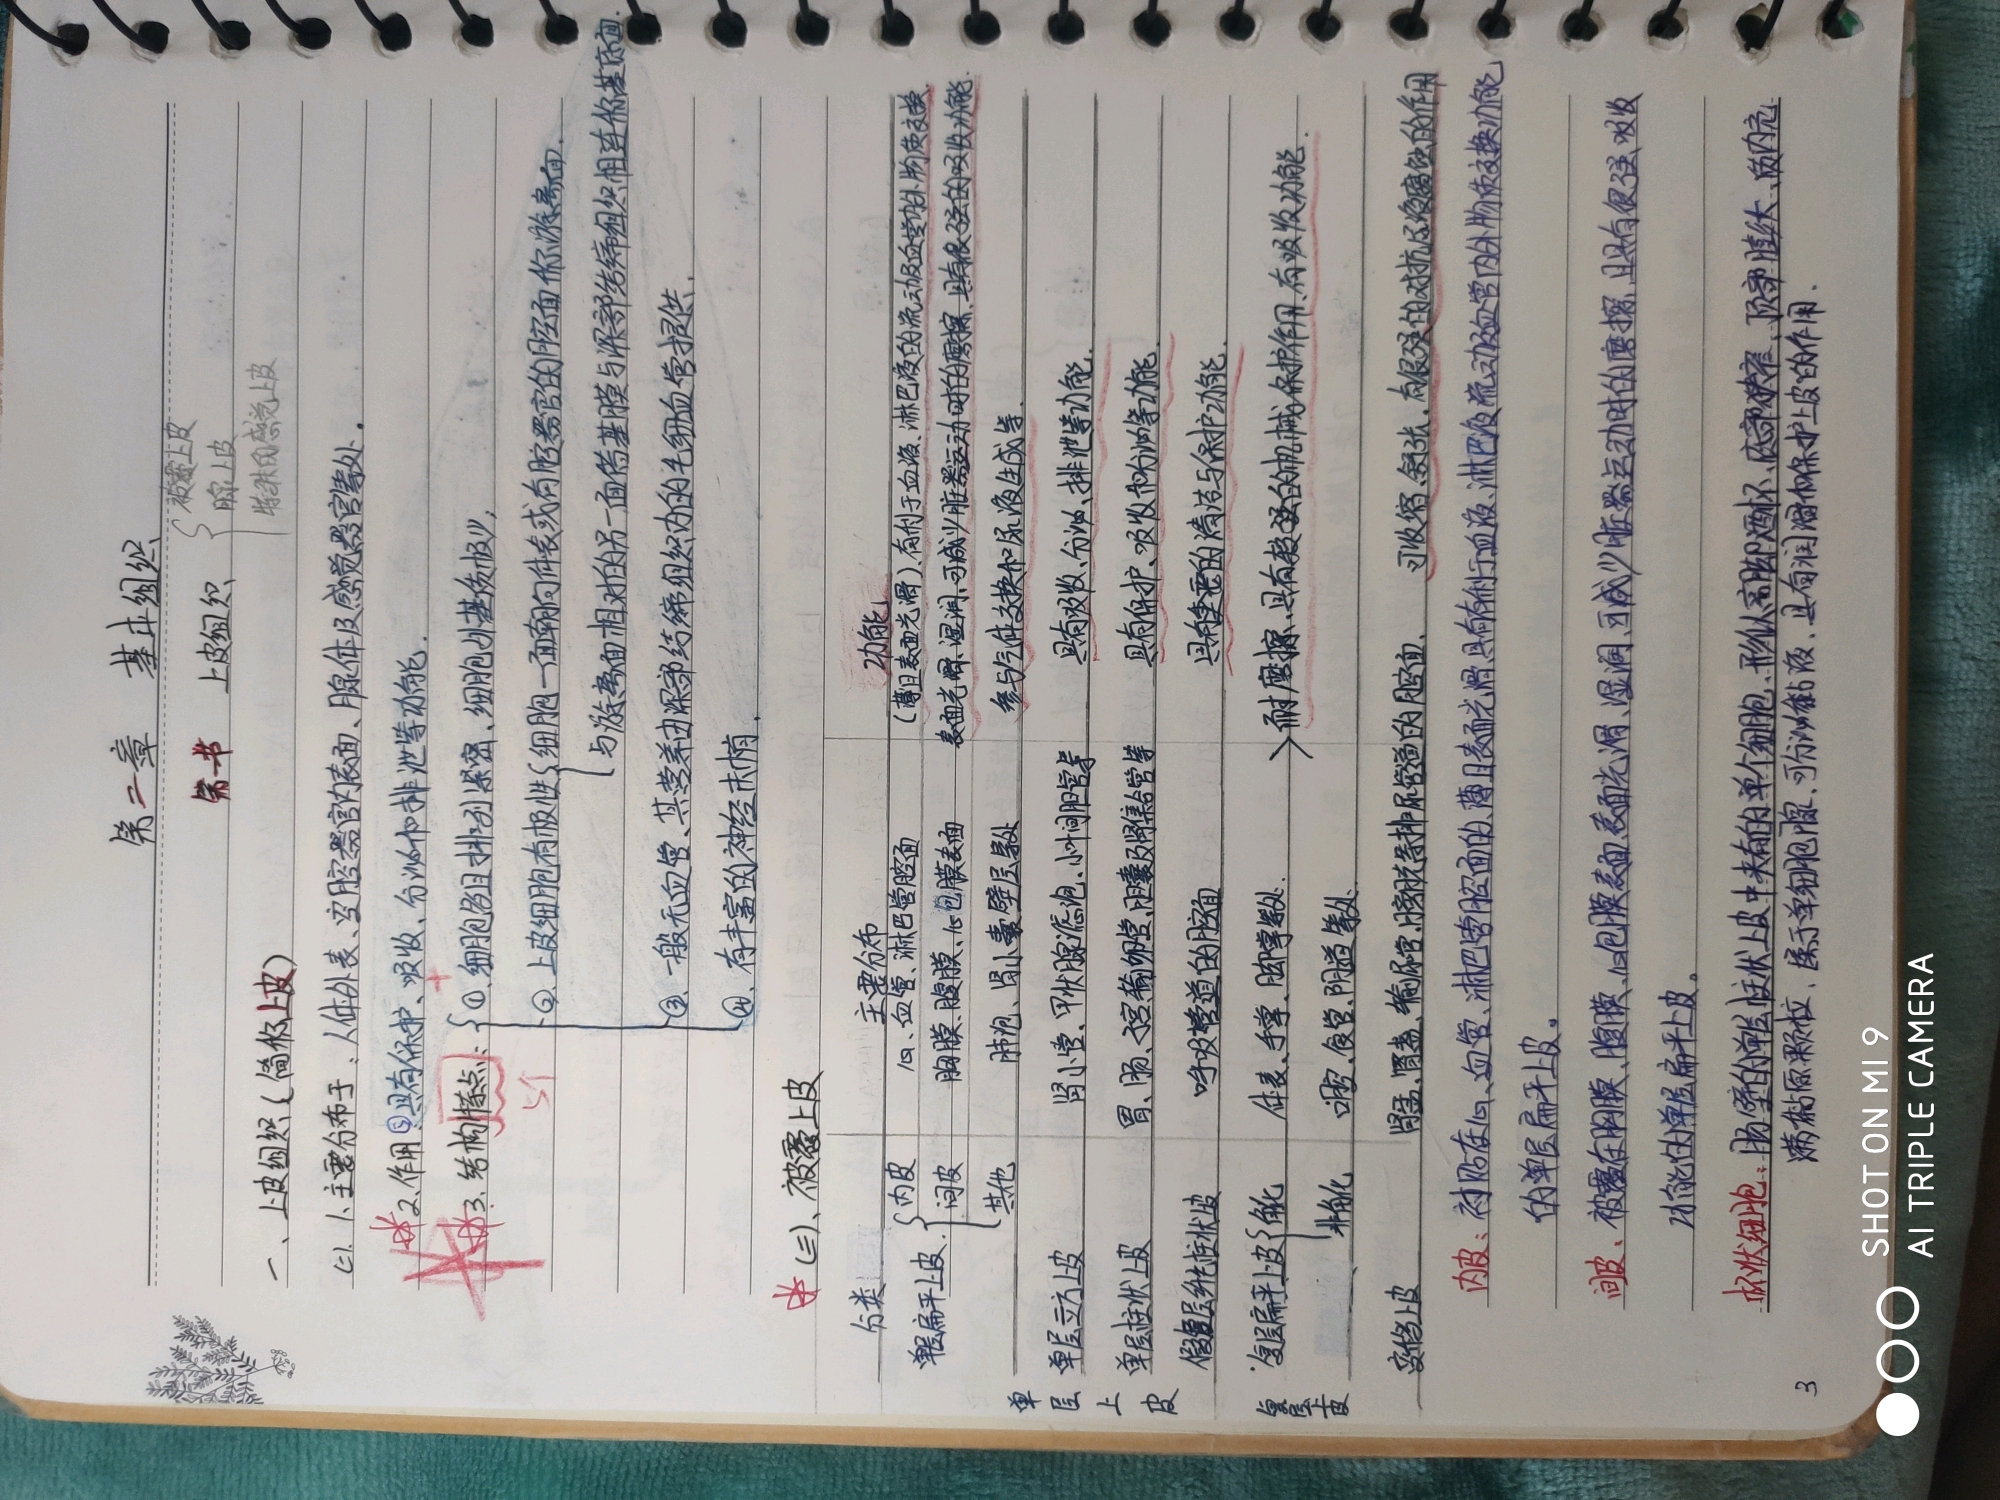 第二章 基本组织
第一节 上皮组织
被覆上皮
腺上皮
特殊感觉上皮
一、上皮组织(简称上皮)
(一)、1、主要分布于:人体外表、空腔器官内表面、腺体及感觉器官等处。
2、作用:具有保护、吸收、分泌和排泄等功能.
3、结构特点: ①、细胞多且排列紧密、细胞少基质极少,
②、上皮细胞有极性 细胞一面朝向体表或有腔器官的腔面称游离面.
与游离面相对的另一面借基膜与深部结缔组织相连称基底面.
③、一般无血管、其营养由深部结缔组织内的毛细血管提供.
④、有丰富的神经末梢.
(二)、被覆上皮
分类 主要分布 功能
单层上皮
单层扁平上皮. 内皮 心、血管、淋巴管腔面 (薄且表面光滑)、有利于血液、淋巴液的流动及血管内外物质交换
间皮 胸膜、腹膜、心包膜表面 表面光滑、湿润、可减少脏器运动时的摩擦、具有很强的吸收功能.
其他 肺泡、肾小囊壁层等处 参与气体交换和尿液生成等.
单层立方上皮 肾小管、甲状腺滤泡、小叶间胆管等 具有吸收、分泌、排泄等功能.
单层柱状上皮 胃、肠、子宫、输卵管、胆囊及肾集合管等 具有保护、吸收和分泌等功能
假复层纤毛柱状上皮 呼吸管道的腔面 具有重要的清洁与保护功能.
复层上皮
复层扁平上皮 角化 体表、手掌、脚掌等处. 耐磨擦、具有较强的机械保护作用、有吸收功能.
非角化 口腔、食管、阴道等处
变移上皮 肾盂、肾盏、输尿管、膀胱等排尿管道的腔面. 可收缩、舒张、有很强的对抗尿液腐蚀的作用
内皮: 衬贴在心、血管、淋巴管腔面的、薄且表面光滑具有利于血液、淋巴液流动及血管内外物质交换功能
的单层扁平上皮。
间皮、被覆在胸膜、腹膜、心包膜表面、表面光滑、湿润、可减少脏器运动时的摩擦、且具有很强吸收
功能的单层扁平上皮。
杯状细胞: 肠壁的单层柱状上皮中夹有的单个细胞、形似高脚酒杯、底部狭窄、顶部膨大、质内充
满粘原颗粒、属于单细胞腺、可分泌黏液、具有润滑和保护上皮的作用.
3
SHOT ON MI 9
AI TRIPLE CAMERA